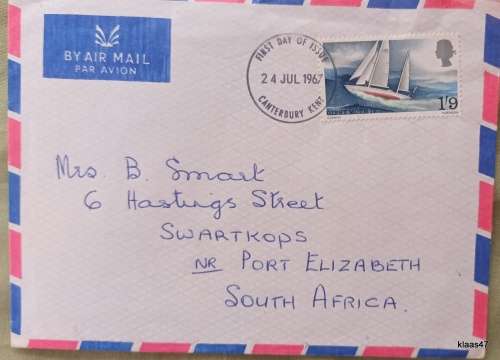 BY AIR MAIL
PAR AVION
FIRST DAY OF ISSUE
24 JUL 1967
CANTERBURY KENT
1'9
Mrs. B. Smart
6 Hastings Street
SWARTKOPS
NR PORT ELIZABETH
SOUTH AFRICA.
klaas47